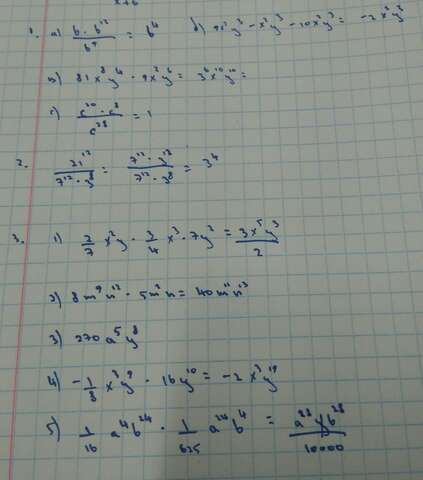 x+6
1. а) b · b¹² / b⁹ = b⁴ б) 9x²y³ - x²y³ - 10x²y³ = -2x²y³
в) 81x⁸y⁴ · 9x²y⁶ = 3⁶x¹⁰y¹⁰ =
г) c²⁰ · c⁸ / c²⁸ = 1
2. 21¹² / 7¹² · 3⁸ = 7¹² · 3¹² / 7¹² · 3⁸ = 3⁴
3. 1) 2/7 x²y · 3/4 x³ · 7y² = 3x⁵y³ / 2
2) 8m⁹n¹² · 5m²n = 40m¹¹n¹³
3) 270a⁵y⁸
4) -1/8 x³y⁹ · 16y¹⁰ = -2x³y¹⁹
5) 1/16 a⁴b²⁴ · 1/625 a²⁴b⁴ = a²⁸b²⁸ / 10000